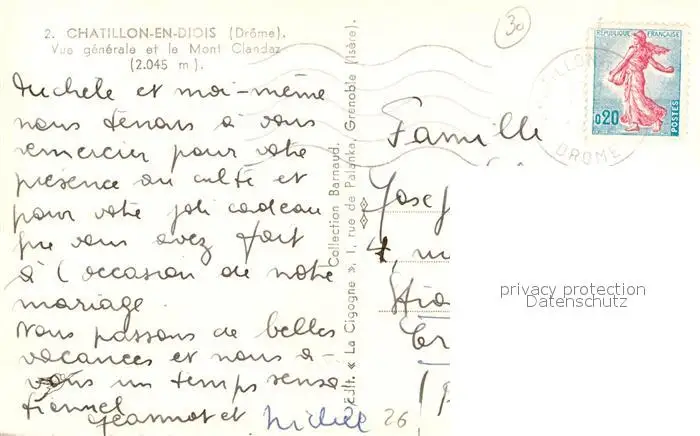 2. CHATILLON-EN-DIOIS (Drôme).
Vue générale et le Mont Clandaz
(2.045 m).
Michèle et moi-même
nous tenons à vous
remercier pour votre
présence au culte et
pour votre joli cadeau
que vous avez fait
à l'occasion de notre
mariage.
Nous passons de belles
vacances et nous a-
vons un temps sensa
tionnel
Jeannot et Michèle
Édit. « La Cigogne », 1, rue de Palanka, Grenoble (Isère).
Collection Barnaud.
30
RÉPUBLIQUE FRANÇAISE
0,20
POSTES
DROME
Famille
Josef
4,
privacy protection
Datenschutz
26